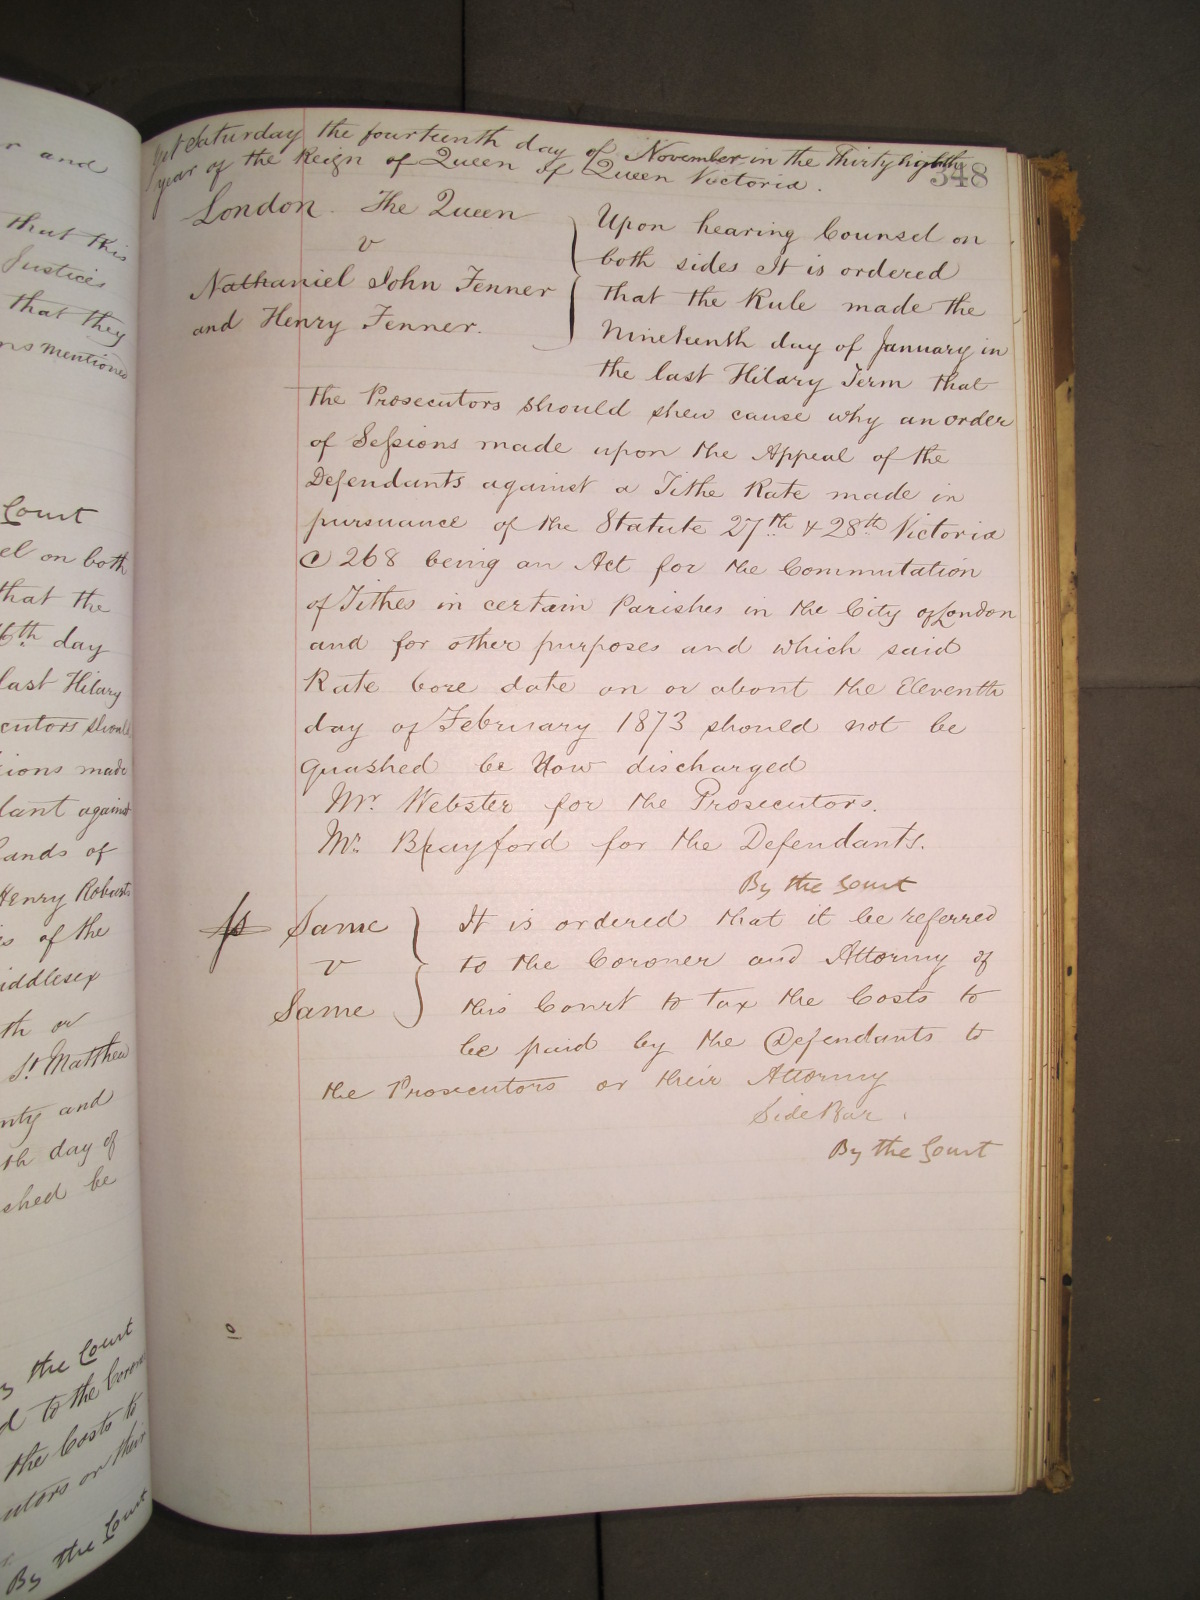 r and
that this
Justices
that they
ns mentioned
Court
el on both
that the
6th day
last Hilary
cutors should
ions made
lant against
Lands of
Henry Roberts
s of the
iddlesex
th or
St Matthew
nty and
th day of
shed be
By the Court
d to the Coroner
the Costs to
utors or their
By the Court
348
Yet Saturday the fourteenth day of November in the Thirty Eighth
year of the Reign of Queen of Queen Victoria.
London. The Queen
v
Nathaniel John Fenner
and Henry Fenner.
Upon hearing Counsel on
both sides It is ordered
that the Rule made the
Nineteenth day of January in
the last Hilary Term that
the Prosecutors should shew cause why an order
of Sessions made upon the Appeal of the
Defendants against a Tithe Rate made in
pursuance of the Statute 27th & 28th Victoria
C 268 being an Act for the Commutation
of Tithes in certain Parishes in the City of London
and for other purposes and which said
Rate bore date on or about the Eleventh
day of February 1873 should not be
quashed be Now discharged
Mr. Webster for the Prosecutors.
Mr. Brayford for the Defendants.
By the Court
Same
v
Same
It is ordered that it be referred
to the Coroner and Attorney of
this Court to tax the Costs to
be paid by the Defendants to
the Prosecutors or their Attorney
Side Bar.
By the Court